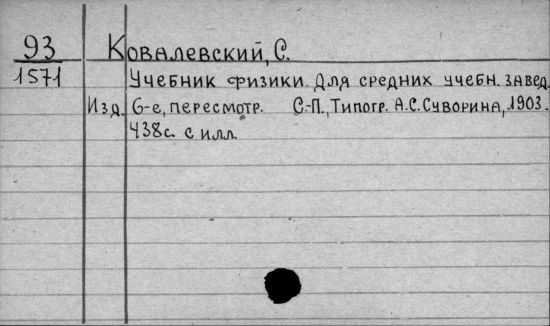 93 Ковалевский, С.
1571 Учебник физики. Для средних учебн. завед.
Изд. 6-е, пересмотр. С.-П., Типогр. А.С. Суворина, 1903.
438с. с илл.